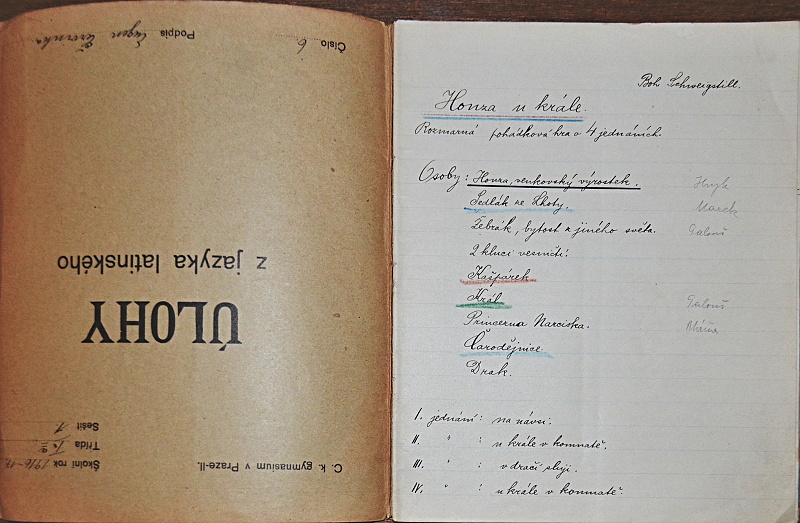 C. k. gymnasium v Praze-II.
Školní rok 1916-17
Třída I. a
Sešit 1
ÚLOHY
z jazyka latinského
Číslo 6
Podpis Eugen Červinka
Boh. Schweigstill.
Honza u krále.
Rozmarná pohádková hra o 4 jednáních.
Osoby: Honza, venkovský výrostek.
Sedlák ze Lhoty. Marek
Žebrák, bytost z jiného světa.
2 kluci vesničtí.
Kašpárek
Král
Princezna Narciska.
Čarodějnice
Drak.
I. jednání: na návsi.
II. " : u krále v komnatě.
III. " : v dračí sluji.
IV. " : u krále v komnatě.